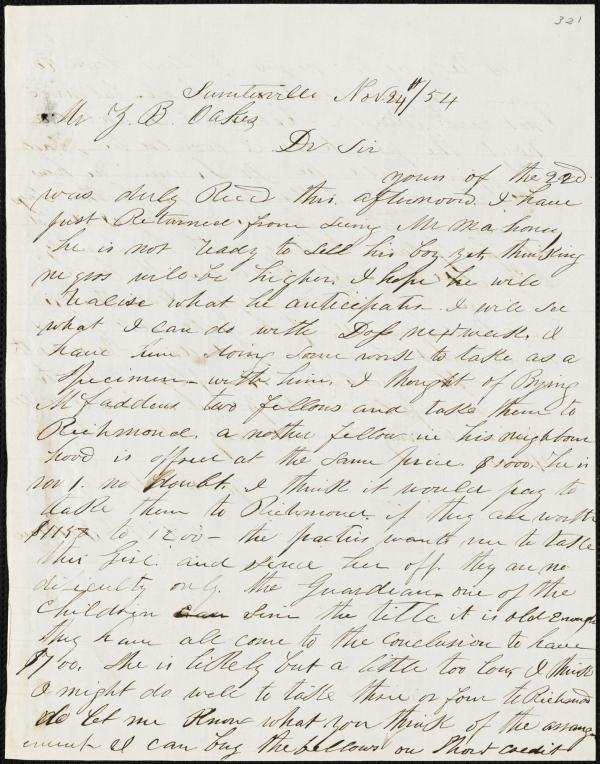 321
Sumterville Nov 24th/54
Mr Z. B. Oakes
Dr Sir
yours of the 22d
was duly Recd this afternoon. I have
just Returned from seeing Mr Mahoney
he is not ready to sell his boy yet, thinking
negros will be higher. I hope he will
realise what he anticipates. I will see
what I can do with next week. I
have him doing some work to take as a
specimen - with him. I thought of Bying
McFaddens two fellows and take them to
Richmond. a nother fellow in his neighbour
hood is offered at the same price. $1000. he is
no 1. no doubt. I think it would pay to
take them to Richmond if they are worth
$1150 to 1200 - the parties wants me to take
this Girl. and send her off. they are no
dificulty only. the Guardian. one of the
Children can sine the title it is old Enough
they have all come to the conclusion to have
$700. She is likely but a little too low, I think
I might do well to take three or four to Richmond
do let me Know what you think of the arrang
ement I can buy the fellows on short credit